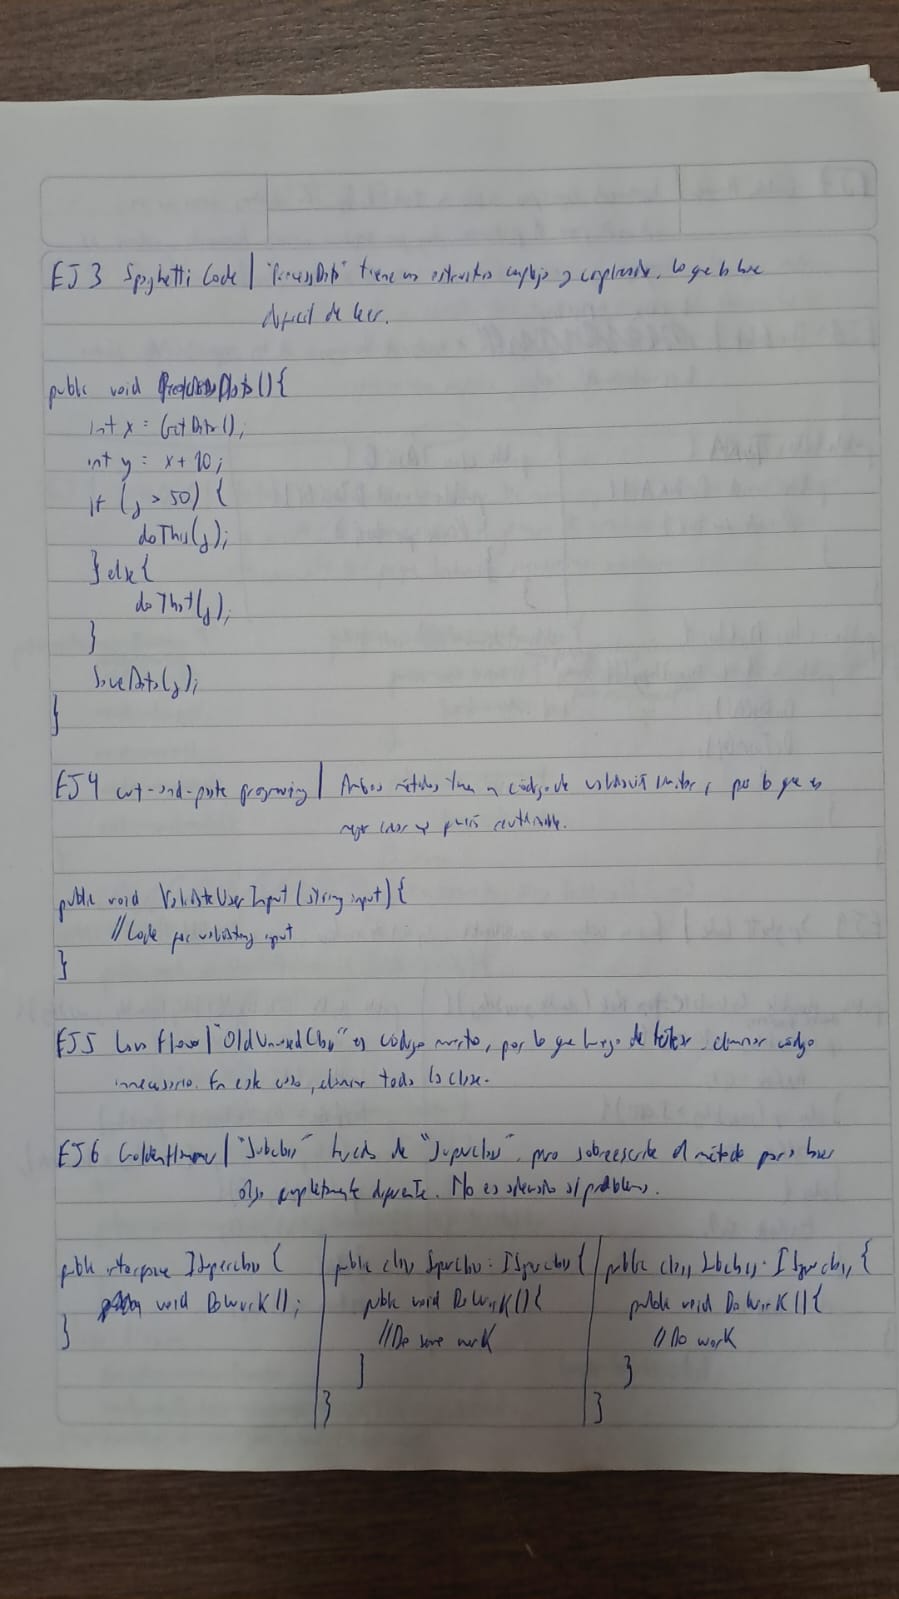 EJ 3 Spaghetti Code | "ProcessData" tiene una estructura compleja y complicada. Lo que lo hace
difícil de leer.
public void ProcessData(){
int x = GetData();
int y = x + 10;
if (y > 50) {
doThis(y);
} else {
doThat(y);
}
SaveData(y);
}
EJ 4 cut-and-paste programing | Ambos métodos tienen un código de validación similar, por lo que es
mejor crear reutilizable.
public void ValidateUserInput (string input) {
// Code for validating input
}
EJ 5 Lava Flow | "OldUnusedClass" es código muerto, por lo que luego de testear, eliminar código
innecesario. En este caso, eliminar toda la clase.
EJ 6 GoldenHammer | "Subclass" hereda de "Superclass", pero sobreescribe el método para hacer
algo completamente diferente. No es el problema.
public interface ISuperclass {
void DoWork();
}
public class Superclass : ISuperclass {
public void DoWork() {
// Do some work
}
}
public class Subclass : ISuperclass {
public void DoWork() {
// Do work
}
}